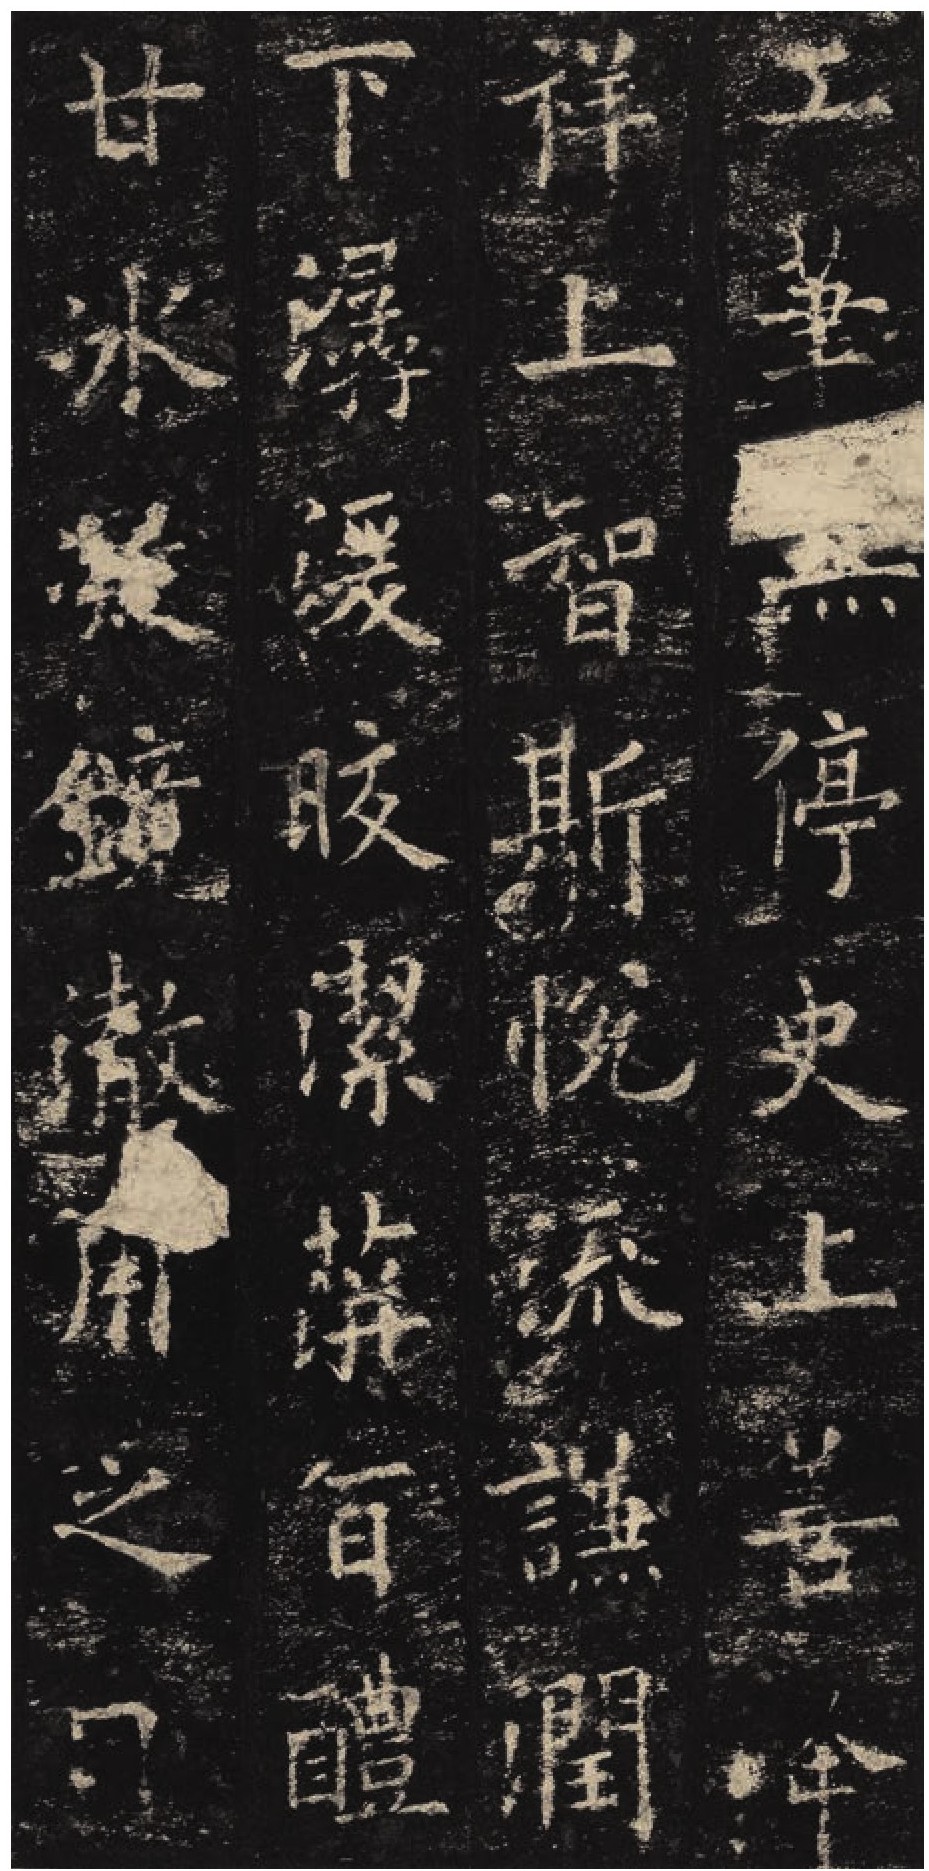 工筆無停史上善降
祥上智斯悅流謙潤
下潺湲皎潔蓱旨醴
甘冰凝鏡澈用之日